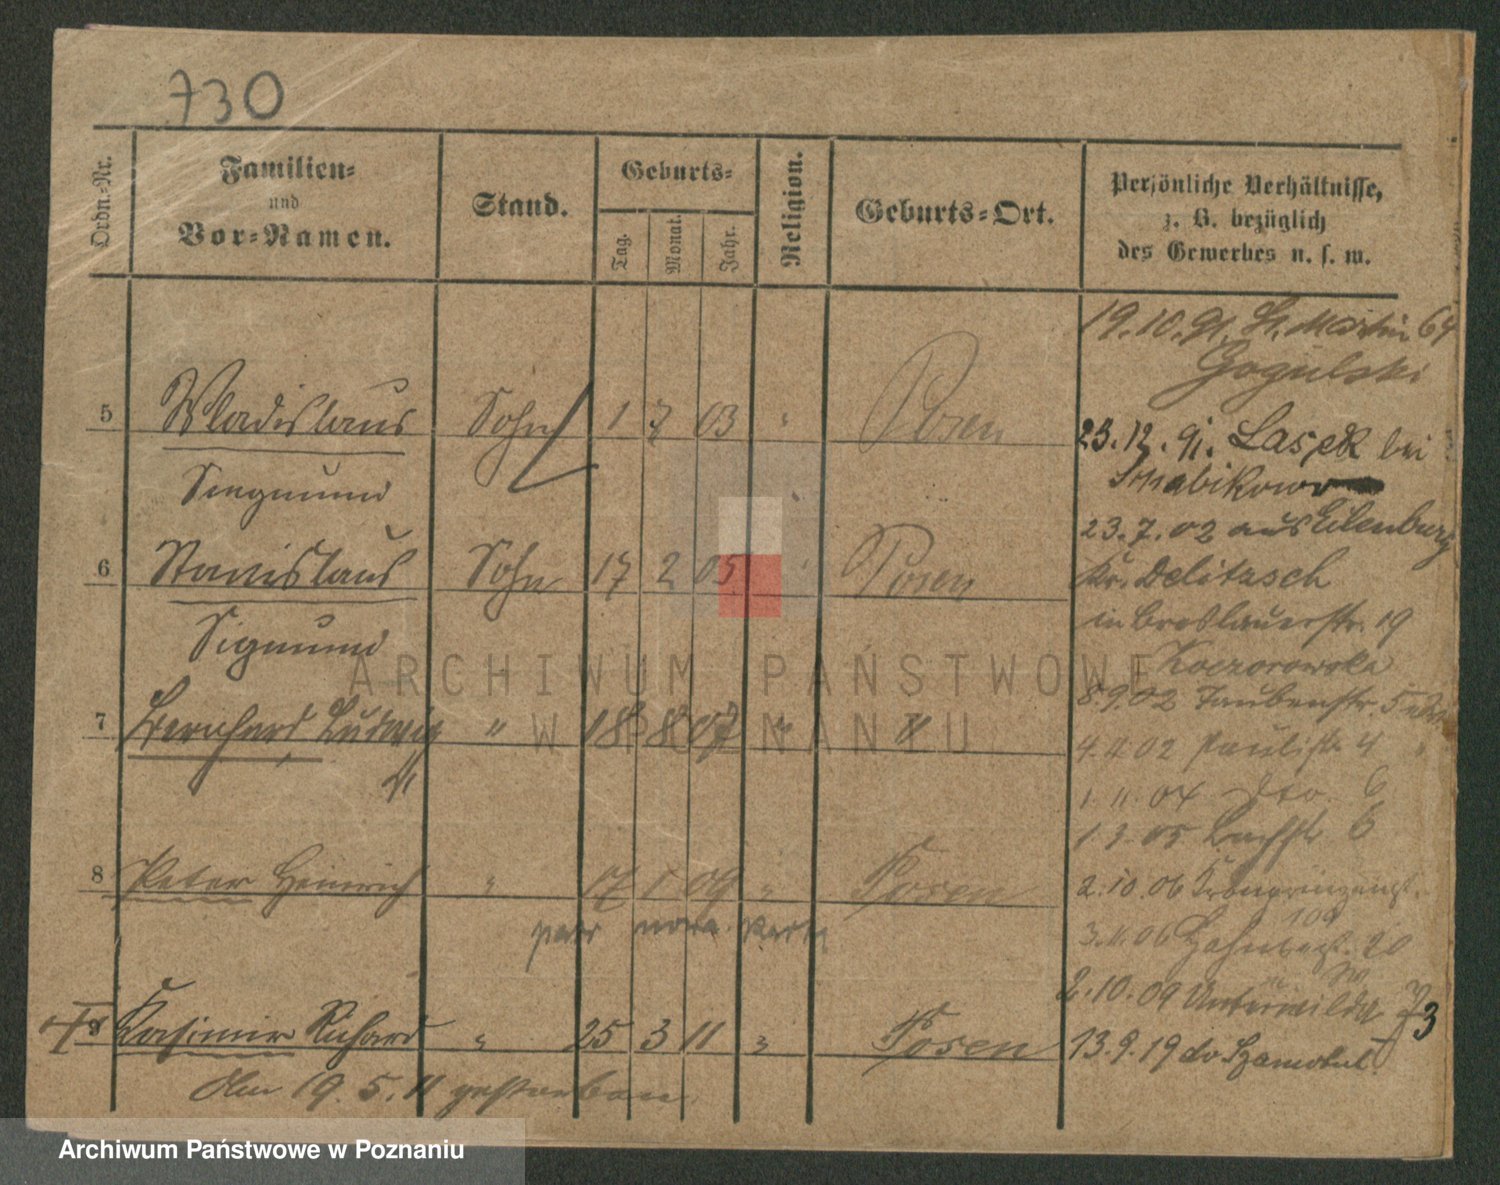 730
Ordn.-Nr.
Familien-
und
Vor-Namen.
Stand.
Geburts-
Tag.
Monat.
Jahr.
Religion.
Geburts-Ort.
Persönliche Verhältnisse,
z. B. bezüglich
des Gewerbes u. s. w.
19.10.91. St. Martin 64
Gogulski
5 Wladislaus Sohn 1 7 03 " Posen
23.12.91. Lasek bei
Siegmund
23.7.02 aus Eilenburg
6 Stanislaus Sohn 17 2 05 " Posen
Kr. Delitzsch
in Breslauerstr. 19
Sigmund
Koczorowska
8.9.02 Taubenstr. 5
7 Bernhard Ludwig " 18 8 07 " "
4.11.02 Paulistr. 4
1.11.04 dto. 6
1.3.05 6
8 Peter Heinrich " 17 1 09 " Posen
2.10.06 Kronprinzenst.
100
3.11.06 20
2.10.09 Unterwilda 73
9 Kasimir Richard " 25 3 11 " Posen
13.9.19
Am 19.5.11 gestorben.
ARCHIWUM PAŃSTWOWE
W POZNANIU
Archiwum Państwowe w Poznaniu